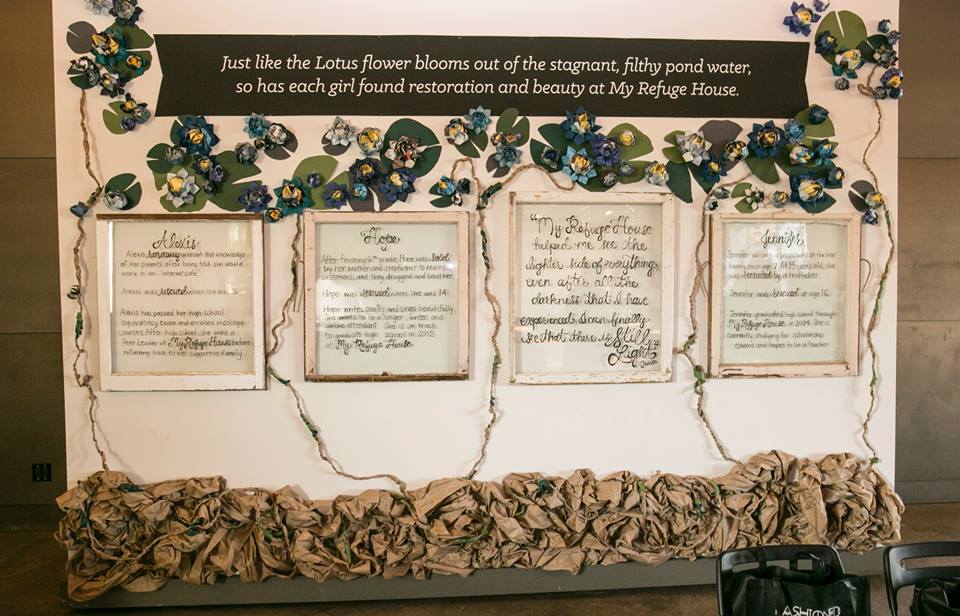 Just like the Lotus flower blooms out of the stagnant, filthy pond water,
so has each girl found restoration and beauty at My Refuge House.
Alexis
Alexis runaway without the knowledge
of her parents after being told she would
work in an "internet cafe."
Alexis was rescued when she was
Alexis has passed her high school
equivalency exam and enrolled in college
courses. After high school, she was a
Peer Leader at My Refuge House before
returning back to her supportive family.
Hope
After finishing 6th grade, Hope was sold
by her mother and stepfather to
customers, and they drugged and beat her.
Hope was rescued when she was 14.
Hope writes poetry and sings beautifully.
She wants to be a singer, writer and
airline attendant. She is on track
to graduate high school in 2015
at My Refuge House.
"My Refuge House
helped me see the
lighter side of everything
even after all the
darkness that I have
experienced. I can finally
see that there is Still
Light."
Jennifer
Jennifer was
family since age 7. At 14 years old, she
was recruited by a trafficker.
Jennifer was rescued at age 16.
Jennifer graduated high school through
My Refuge House in 2014. She is
currently studying for scholarship
exams and hopes to be a teacher.
FASHIONED